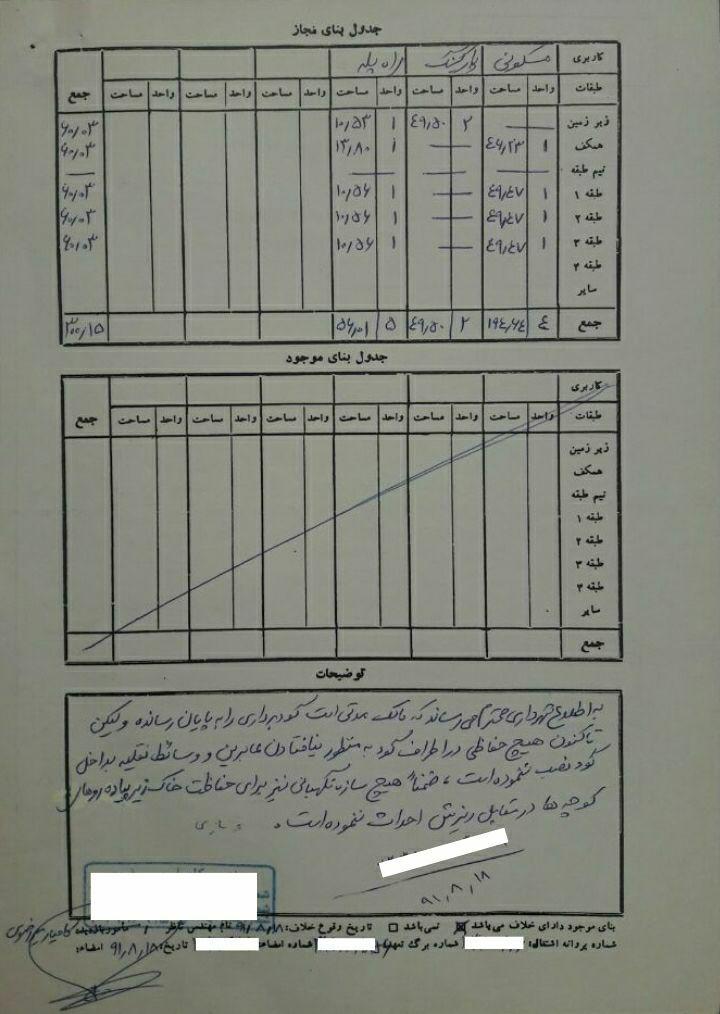 جدول بنای مجاز
کاربری مسکونی پارکینگ راه پله
طبقات واحد مساحت واحد مساحت واحد مساحت واحد مساحت واحد مساحت واحد مساحت جمع
زیر زمین —— ۲ ٤۹٫۵۰ ۱ ۱۰٫۵۳ ۶۰٫۰۳
همکف ۱ ٤۶٫۲۳ —— ۱ ۱۳٫۸۰ ۶۰٫۰۳
نیم طبقه —— —— —— ——
طبقه ۱ ۱ ٤۹٫٤۷ —— ۱ ۱۰٫۵۶ ۶۰٫۰۳
طبقه ۲ ۱ ٤۹٫٤۷ —— ۱ ۱۰٫۵۶ ۶۰٫۰۳
طبقه ۳ ۱ ٤۹٫٤۷ —— ۱ ۱۰٫۵۶ ۶۰٫۰۳
طبقه ۴
سایر
جمع ٤ ۱۹٤٫۶٤ ۲ ٤۹٫۵۰ ۵ ۵۶٫۰۱ ۳۰۰٫۱۵
جدول بنای موجود
کاربری
طبقات واحد مساحت واحد مساحت واحد مساحت واحد مساحت واحد مساحت واحد مساحت جمع
زیر زمین
همکف
نیم طبقه
طبقه ۱
طبقه ۲
طبقه ۳
طبقه ۴
سایر
جمع
توضیحات
به اطلاع شهرداری محترم می رساند که مالک مدتی است گودبرداری را به پایان رسانده ولیکن
تاکنون هیچ حفاظی در اطراف گود به منظور نیافتادن عابرین و وسائط نقلیه بداخل
گود نصب ننموده است ، ضمناً هیچ سازه نگهبانی نیز برای حفاظت خاک زیر پیاده روهای
کوچه ها در مقابل ریزش احداث ننموده است .
۹۱٫۸٫۱۸
بنای موجود دارای خلاف می باشد نمی باشد تاریخ وقوع خلاف: ۹۱٫۸٫۱۸ نام مهندس ناظر مأمور بازدید:
شماره پروانه اشتغال: شماره برگ تعهد شماره امضاء تاریخ: ۹۱٫۸٫۱۸ امضاء: